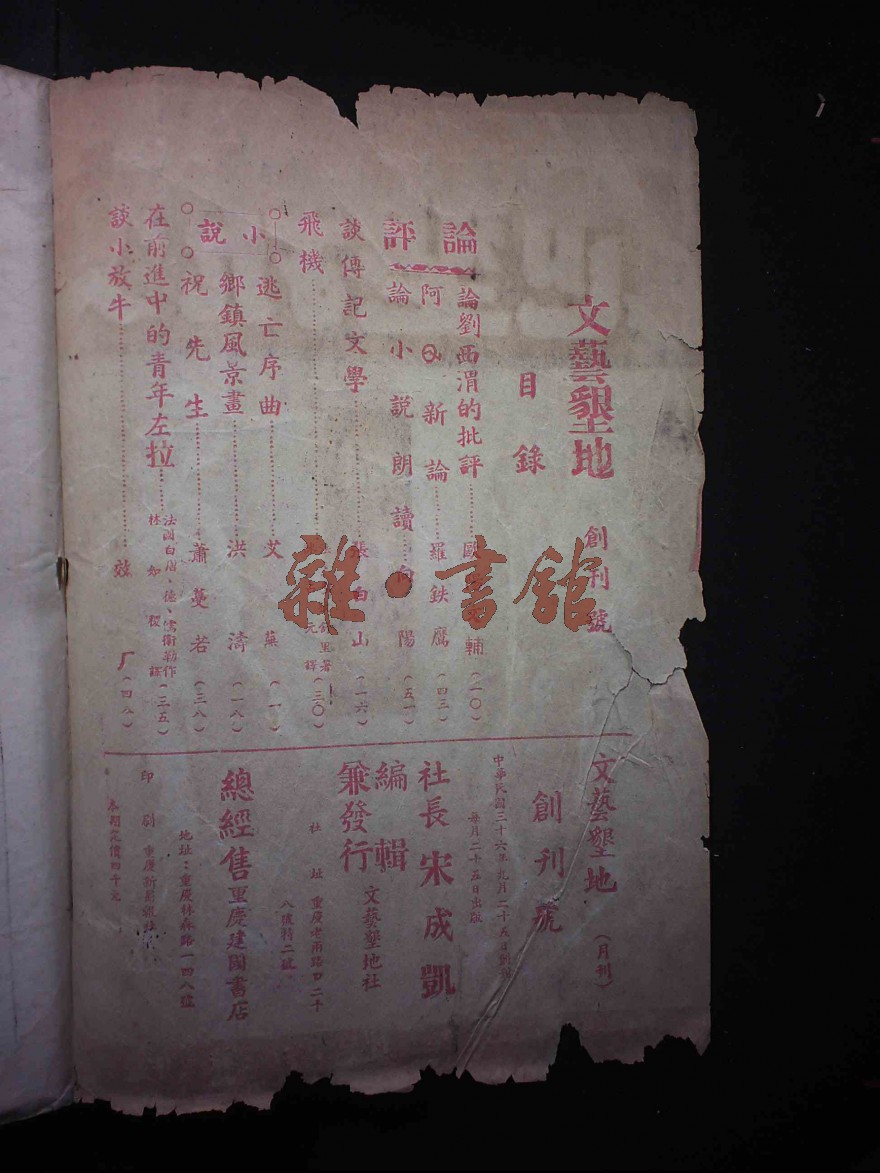 文藝墾地 創刊號
目錄
論評
論劉西渭的批評 輔 (一〇)
阿Q新論 羅鉄鷹 (四三)
論小說朗讀 向陽 (五一)
談傳記文學 張白山 (一六)
飛機 里著 元 譯 (三〇)
小說
逃亡序曲 艾蕪 (一)
鄉鎮風景畫 洪濤 (一八)
祝先生 蕭蔓若 (三八)
在前進中的青年左拉 法國白居、德、雪衛勒作 林如稷譯 (三五)
談小放牛 效厂 (四八)
文藝墾地 (月刊)
創刊號
中華民國三十六年九月二十五日創刊
每月二十五日出版
社長 宋成凱
編輯兼發行 文藝墾地社
社址 重慶老兩路口二十
八梯特二號
總經售 重慶建國書店
地址：重慶林森路一四八號
印刷 重慶新蜀報社
本期定價四千元
雜·書舘